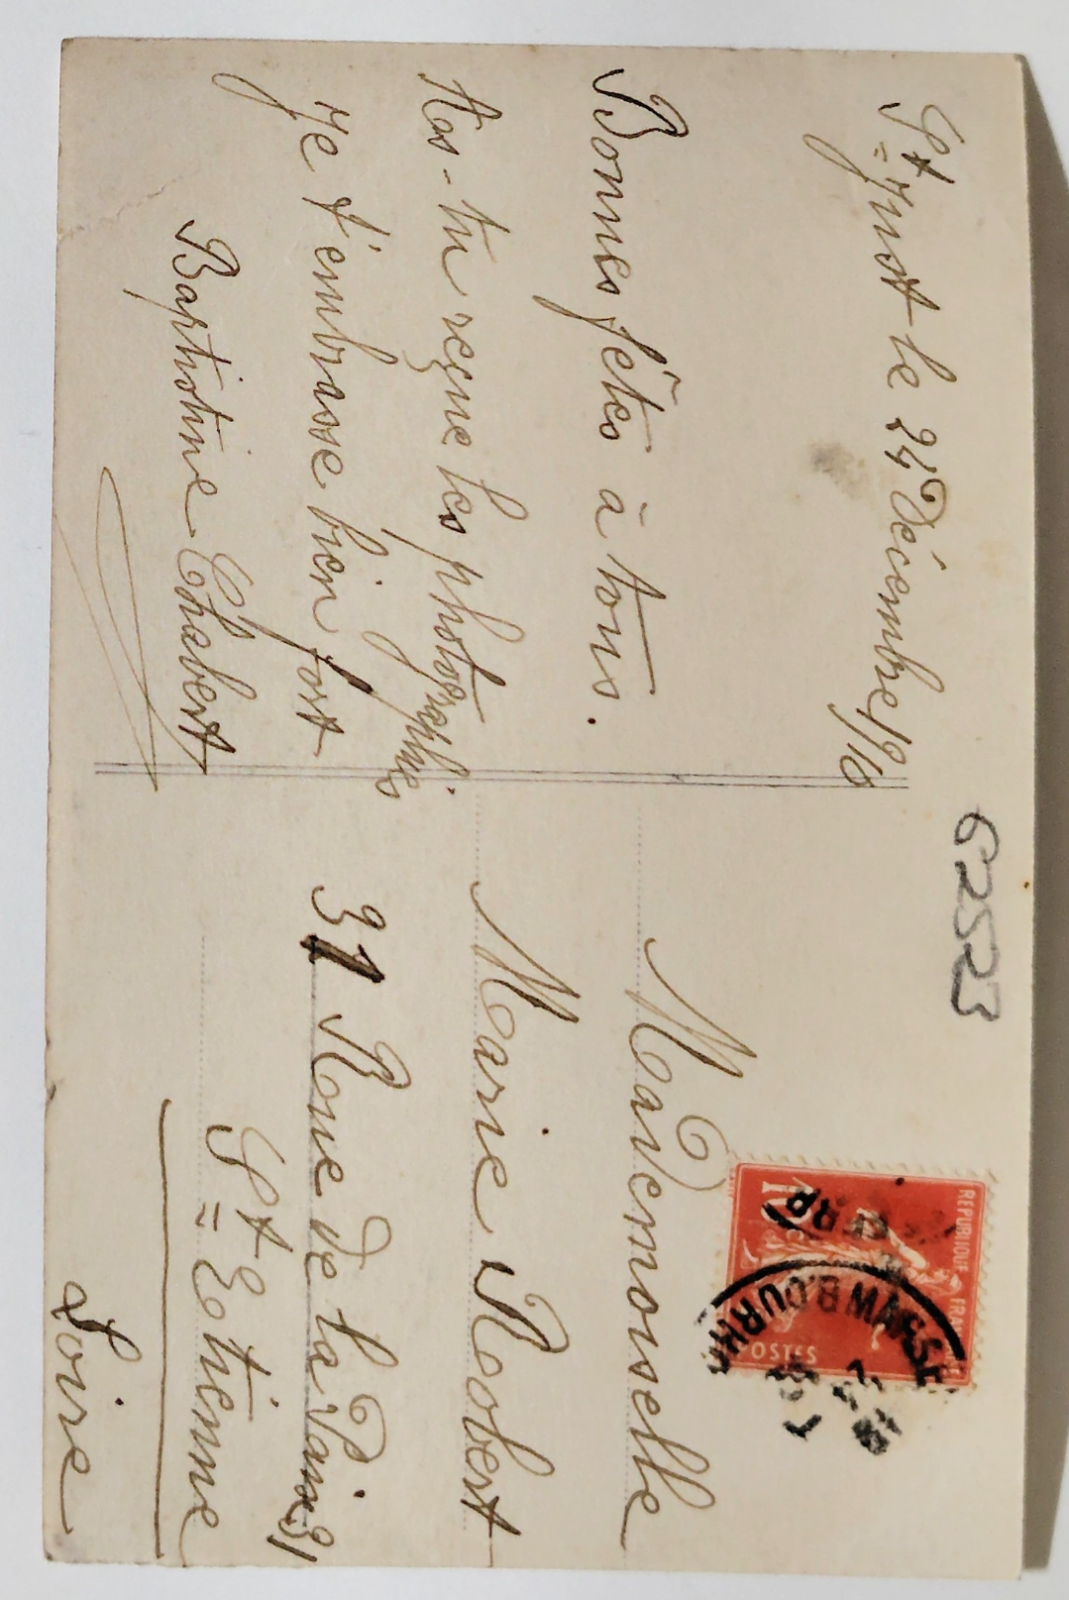 St Just le 24 Décembre/10
Bonnes fêtes à tous.
As-tu reçue les photographies
Je t'embrasse bien fort
Baptistine Chabert
62523
REPUBLIQUE FRANÇAISE
10
POSTES
Mademoiselle
Marie Robert
31 Rue de la Paix 31
St Etienne
Loire